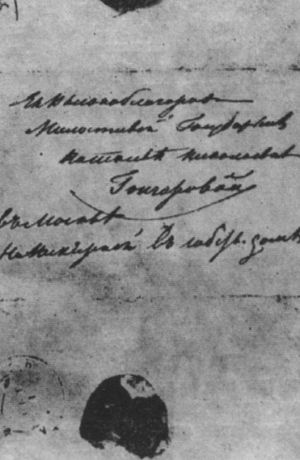 Ея высокоблагород
Милостивой Государын
Наталье Николаевне
Гончаровой
въ Москве
На Никитской въ собств. доме